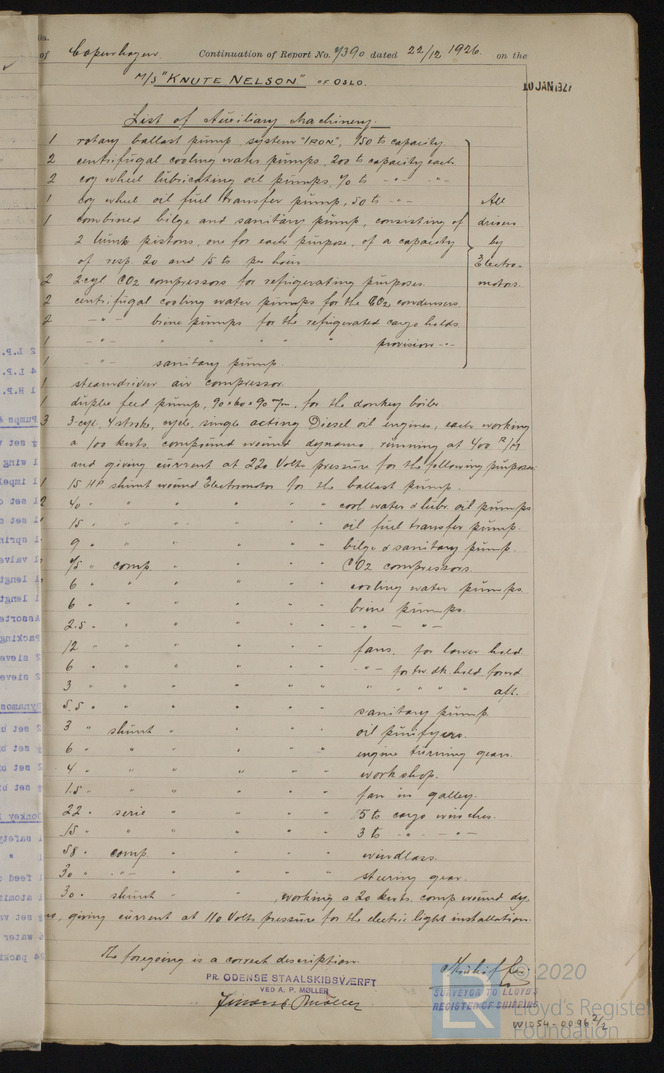 of Copenhagen Continuation of Report No. 7390 dated 22/12 1926. on the
M/S "KNUTE NELSON" OF OSLO.
10 JAN 1927
List of Auxiliary Machinery.
1 rotary ballast pump, system "IRON", 150 to capacity
2 centrifugal cooling water pumps, 200 to capacity each
2 cog wheel lubricating oil pumps, 90 to - " - " -
1 cog wheel oil fuel transfer pump, 50 to - " -
1 combined bilge and sanitary pump, consisting of
2 trunk pistons, one for each purpose, of a capacity
of resp. 20 and 15 to per hour
2 2 cyl CO2 compressors for refrigerating purposes.
2 centrifugal cooling water pumps for the CO2 condensers.
2 - " - brine pumps for the refrigerated cargo holds
1 - " - " " " " " provision - " -
1 - " - sanitary pump.
All
driven
by
Electro-
motors.
1 steamdriven air compressor
1 duplex feed pump, 90 × 60 × 90 m/m, for the donkey boiler
3 3 cyl, 4 stroke, cycle, single acting Diesel oil engines, each working
a 100 kwts. compound wound dynamo, running at 400 R/M
and giving current at 220 Volts pressure for the following purposes:
1 15 HP shunt wound Electromotor for the ballast pump.
2 40 " " " " " " cool. water & lubr. oil pumps
15 " " " " " " oil fuel transfer pump.
9 " " " " " " bilge & sanitary pump.
" comp. " " " CO2 compressors.
6 " " " " " " cooling water pumps
6 " " " " " " brine pumps.
2.5 " " " " " " - " - " -
12 " " " " " " fans for lower hold.
6 " " " " " " - " - for tw. dk. hold forwd
3 " " " " " " " " " " " aft.
5.5 " " " " " " sanitary pump
3 " shunt " " " " oil purifyers.
6 " " " " " " engine turning gear.
4 " " " " " " workshop.
1.5 " " " " " " fan in galley.
22 " serie " " " " 5 to cargo winches.
15 " " " " " " 3 to - " - " -
58 " comp. " " " " windlass.
30 " - " - " " " " steering gear.
30 " shunt " " , working a 20 kwts. comp. wound dy-
, giving current at 110 Volts pressure for the electric light installation.
The foregoing is a correct description.
PR. ODENSE STAALSKIBSVÆRFT
VED A. P. MØLLER
SURVEYOR TO LLOYD'S
REGISTER OF SHIPPING
© 2020
Lloyd's Register
Foundation
W1054-0096 2/2